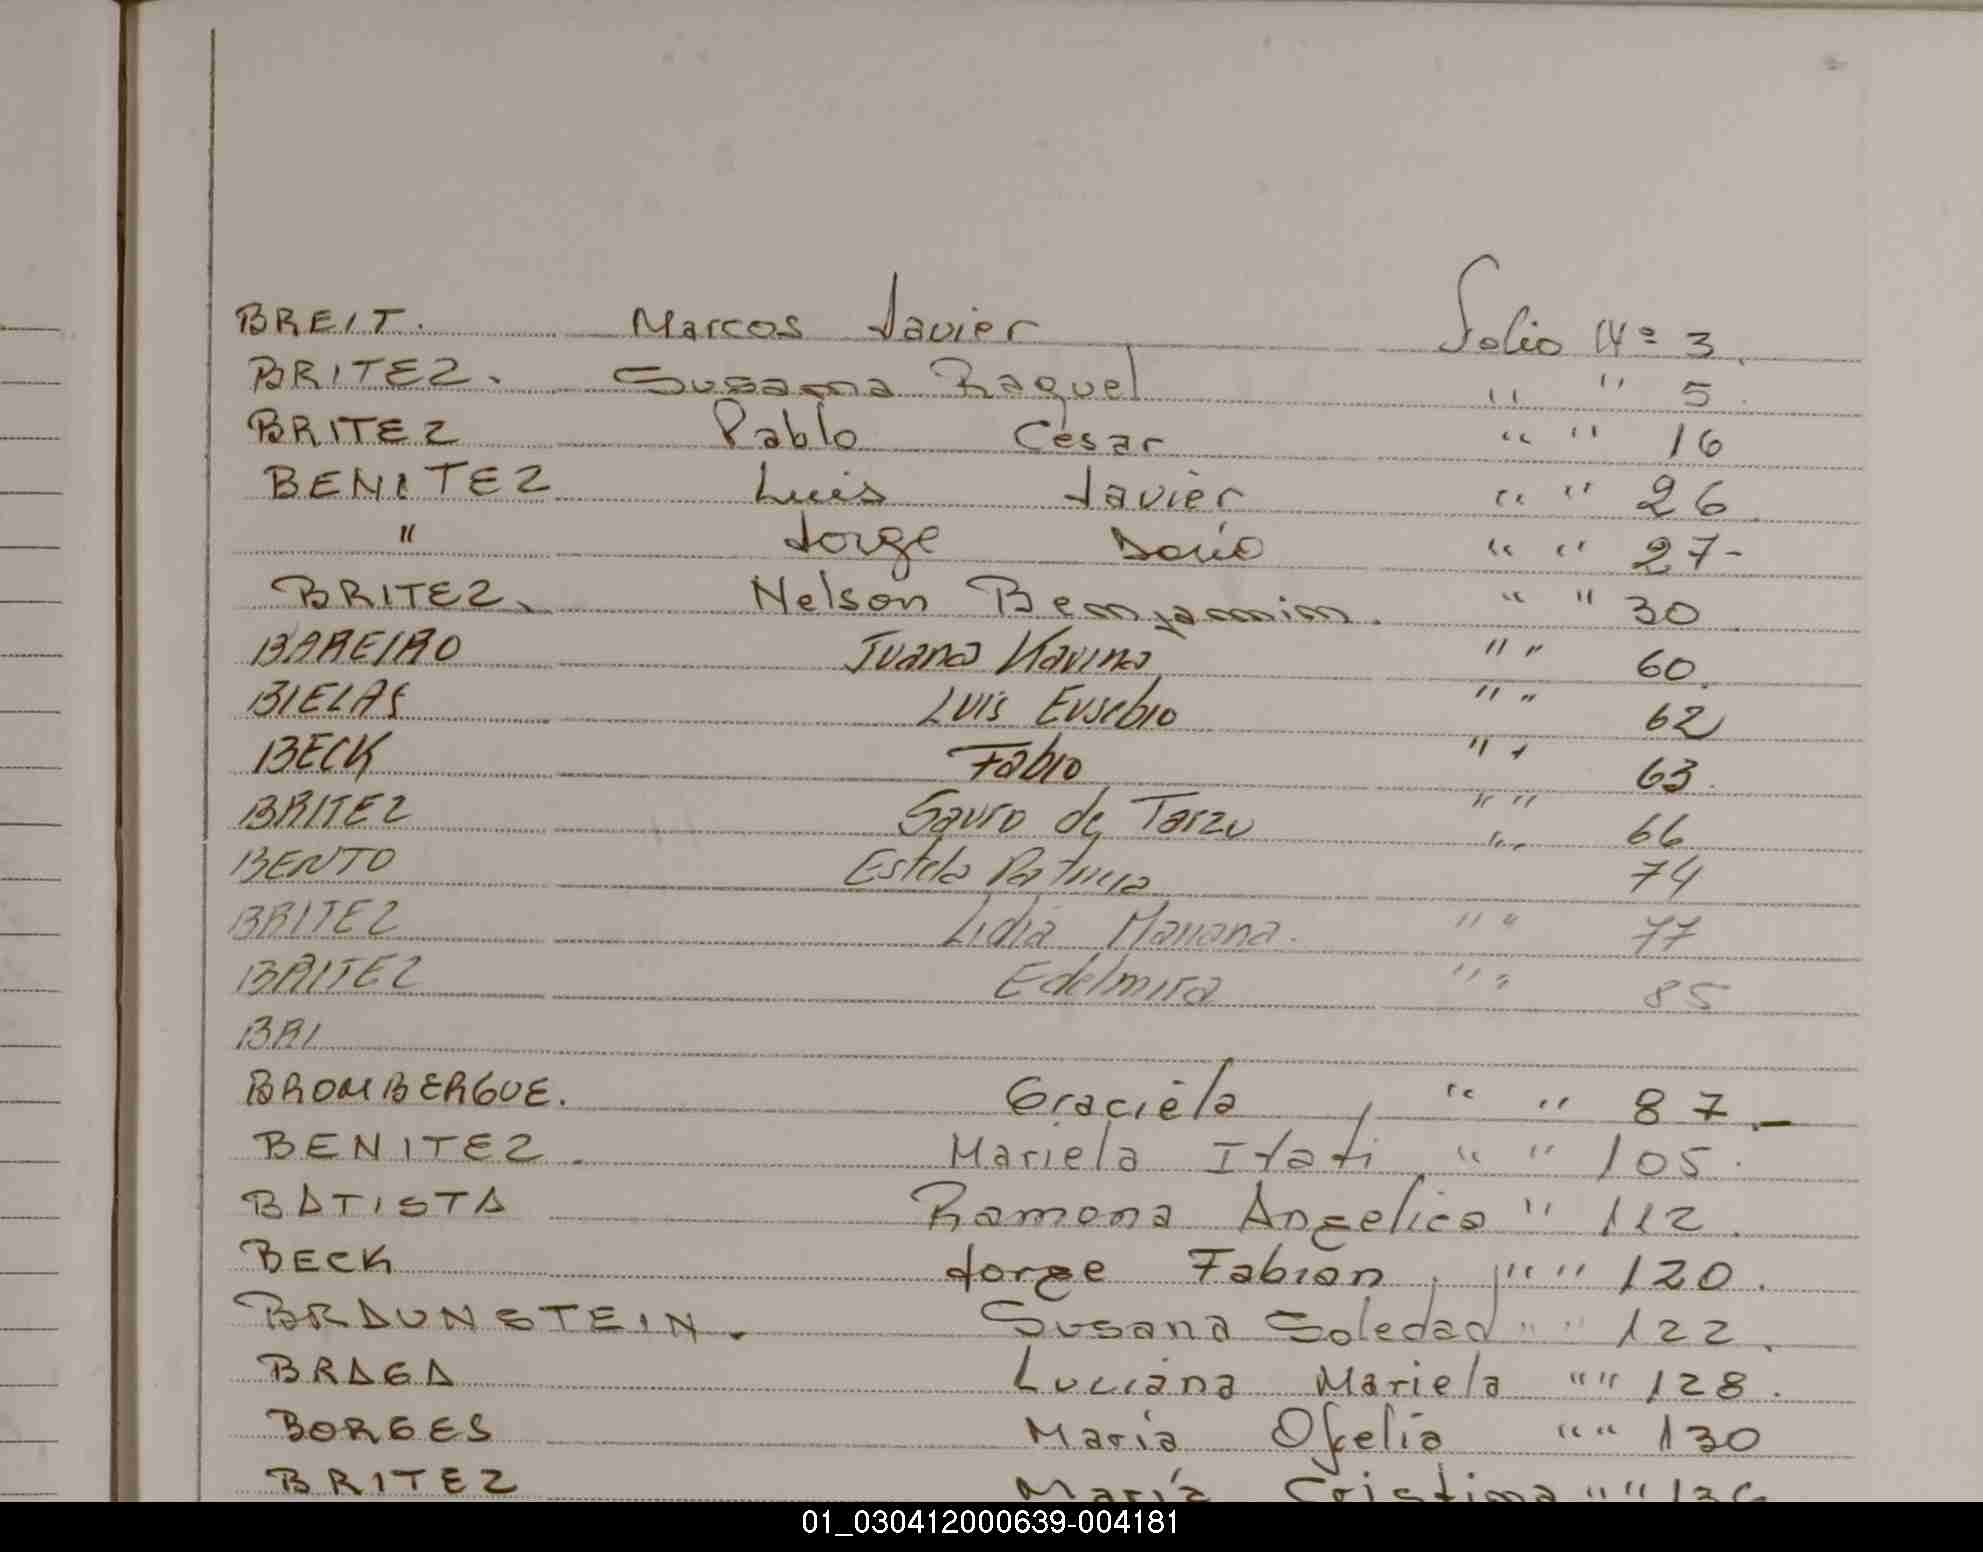 BREIT. Marcos Javier Folio Nº 3.
BRITEZ. Susana Raquel " " 5.
BRITEZ Pablo César " " 16
BENITEZ Luis Javier " " 26
" Jorge Dario " " 27-
BRITEZ. Nelson Benjamin. " " 30
BAREIRO Juana " " 60.
BIELAS Luis Eusebio " " 62
BECK Fabio " " 63.
BRITEZ Sauro de Tarzo " " 66
BENTO Estela Patricia " " 74
BRITEZ Lidia Mariana. " " 77
BRITEZ Edelmira " " 85
BRI
BROMBERGUE. Graciela " " 87.-
BENITEZ. Mariela Itati " " 105.
BATISTA Ramona Angelica " 112.
BECK Jorge Fabian " " 120.
BRAUNSTEIN. Susana Soledad " " 122.
BRAGA Luciana Mariela " " 128.
BORGES Maria Ofelia " " 130
BRITEZ María Cristina " "
01_030412000639-004181